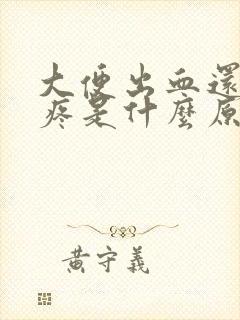 大便出血還
疼是什麼原
黃守義